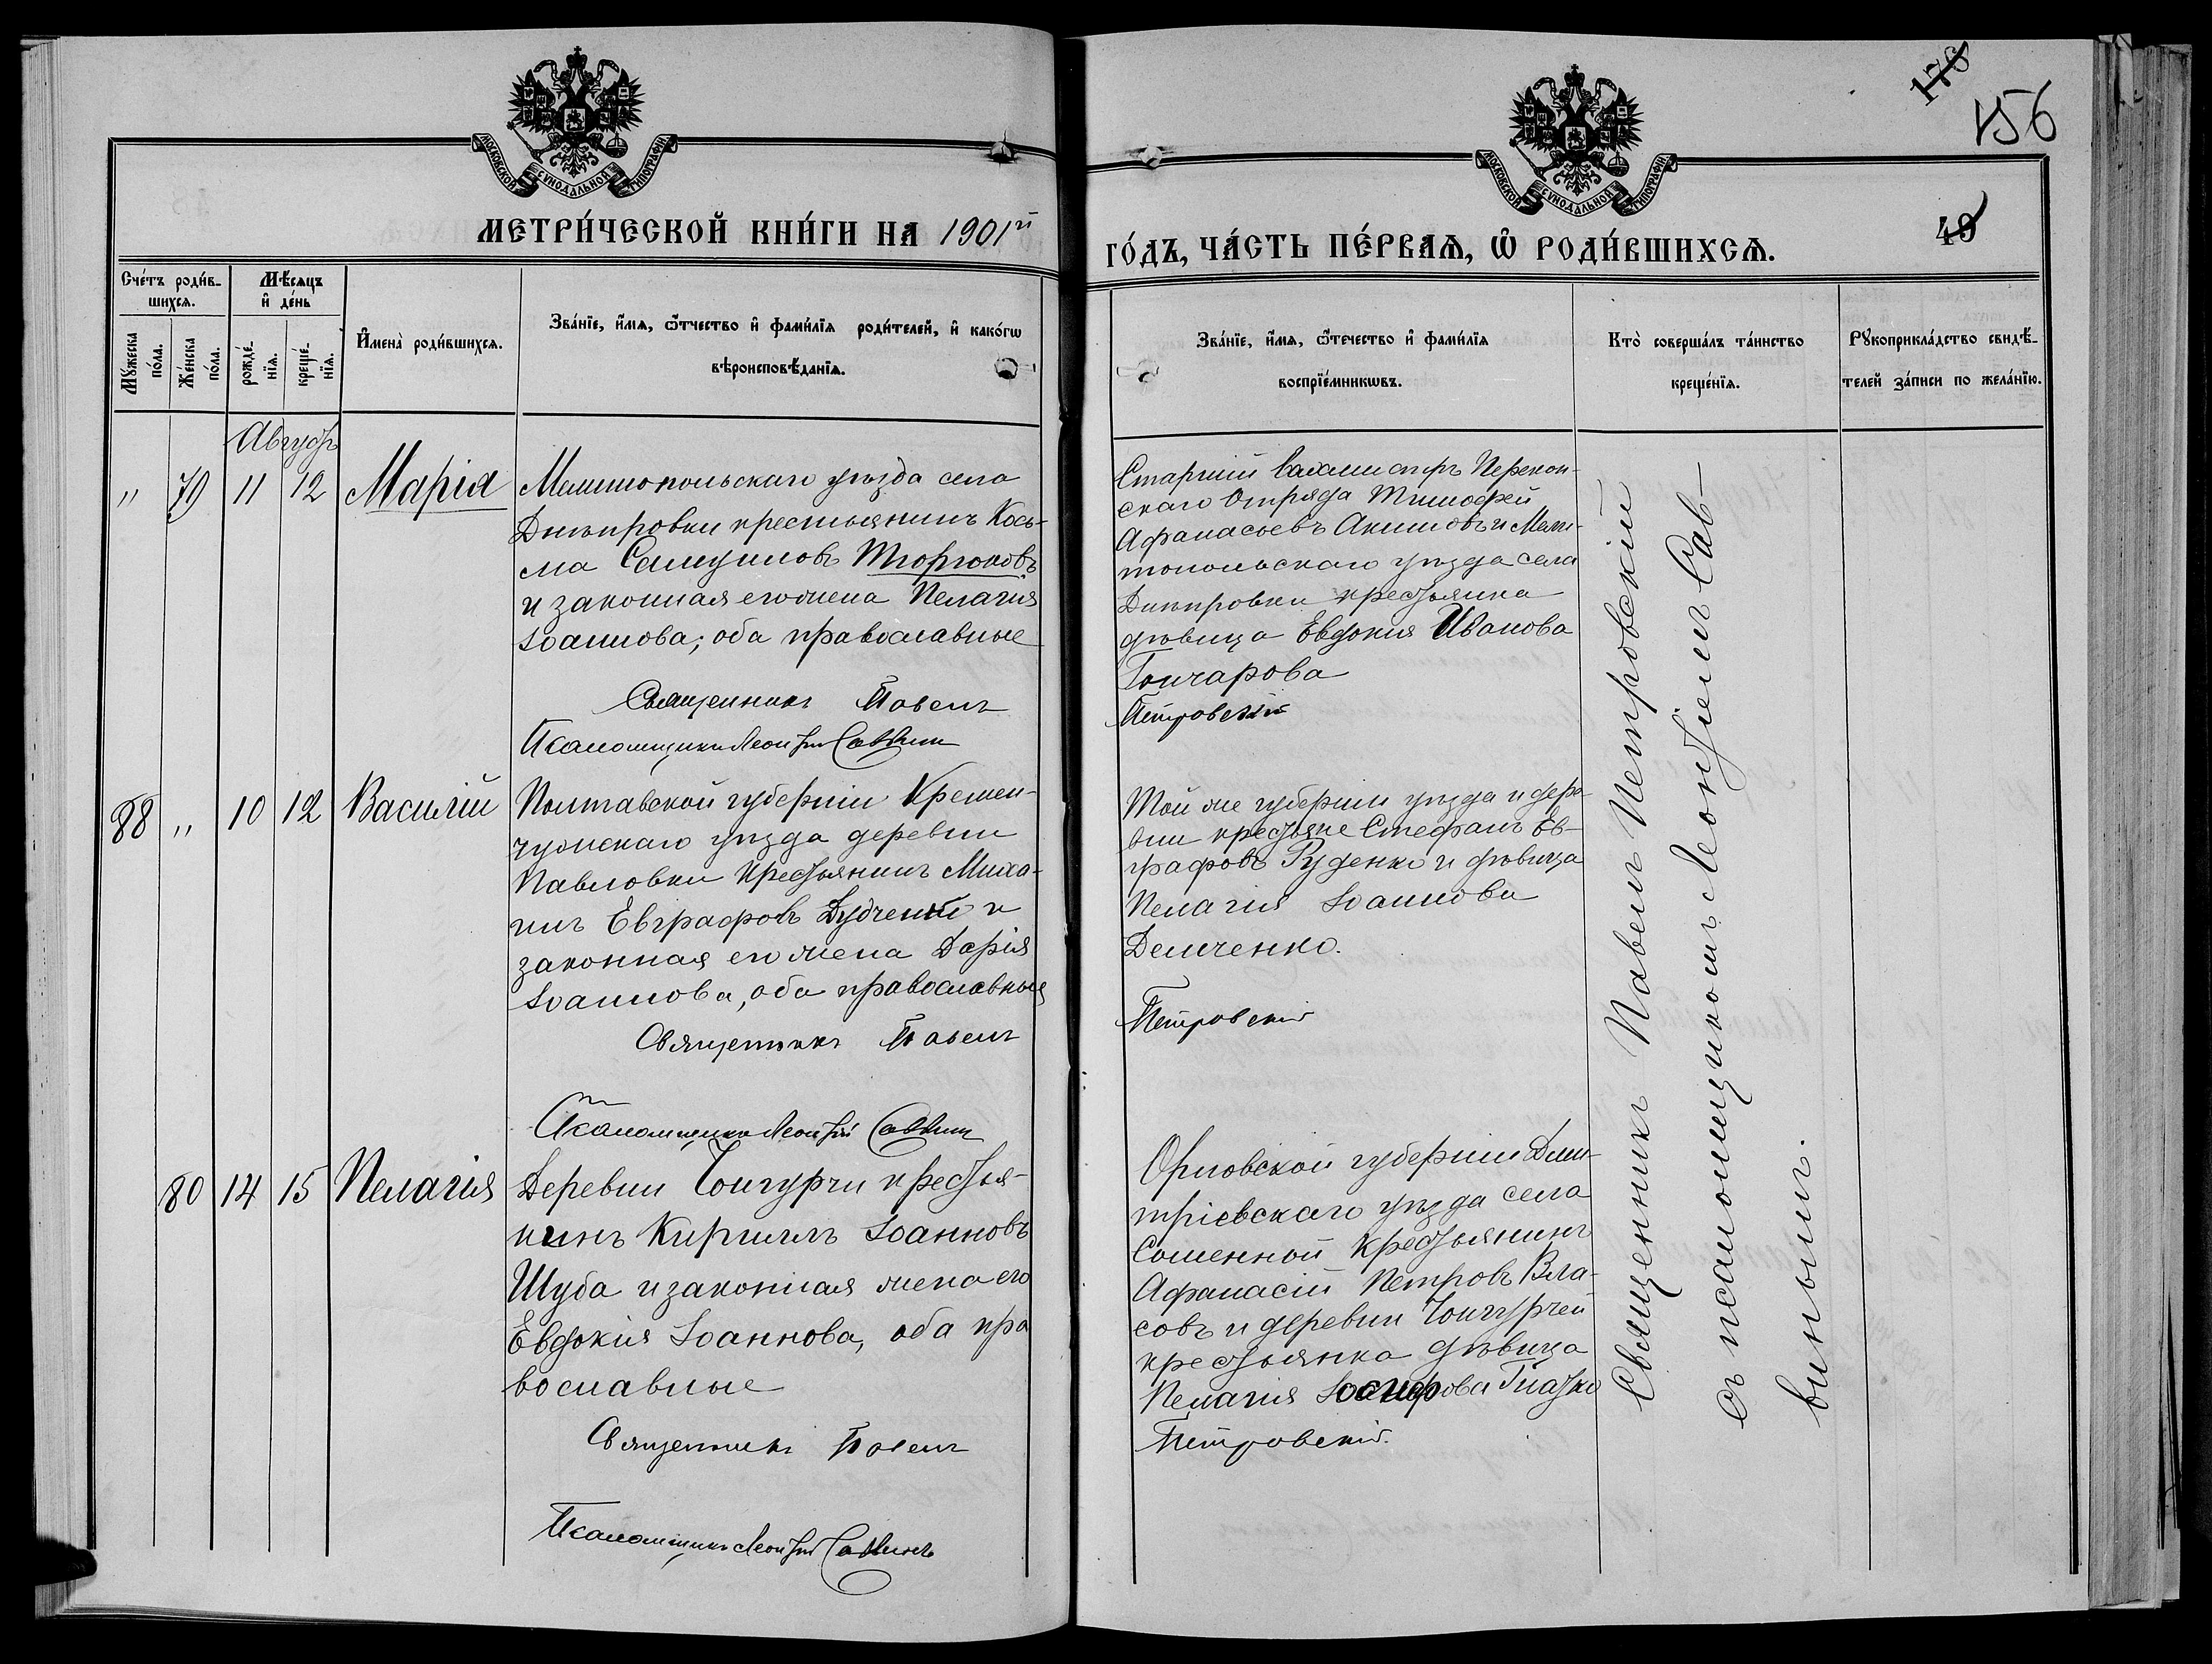 МОСКОВСКОЙ СѴНОДАЛЬНОЙ ТИПОГРАФІИ
МЕТРИ́ЧЕСКОЙ КНИ́ГИ НА 1901й
Сче́тъ роди́в-
шихсѧ.
Мꙋжеска
по́ла.
Же́нска
по́ла.
Мѣ́сѧцъ
и҆ де́нь
рожде́-
нїѧ.
креще́-
нїѧ.
И҆мена̀ роди́вшихсѧ.
Зва́нїе, и҆́мѧ, ѻ҆́тчество и҆ фами́лїѧ роди́телей, и҆ како́гѡ
вѣроисповѣ́данїѧ.
Августъ
" 79 11 12 Марія
Мелитопольскаго уѣзда села
Днѣпровки крестьянинъ Кось-
ма Самуиловъ Тюрюковъ
и законная его жена Пелагия
Іоаннова; оба православные
Священникъ Павелъ
Псаломщикъ Леонтій Саввин
88 " 10 12 Василій
Полтавской губерніи Кремен-
чугскаго уѣзда деревни
Павловки крестьянинъ Миха-
илъ Евграфовъ и
законная его жена Дарія
Іоаннова, оба православныя
Священникъ Павелъ
Псаломщикъ Леонтій Саввин
80 14 15 Пелагія
Деревни Чонгурчи крестья-
нинъ Кириллъ Іоанновъ
Шуба и законная жена его
Евдокія Іоаннова, оба пра
вославные
Священникъ Павелъ
Псаломщикъ Леонтій Саввинъ
МОСКОВСКОЙ СѴНОДАЛЬНОЙ ТИПОГРАФІИ
178
156
49
ГО́ДЪ, ЧА́СТЬ ПЕ́РВАѦ, Ѡ҆ РОДИ́ВШИХСѦ.
Зва́нїе, и҆́мѧ, ѻ҆те́чество и҆ фами́лїѧ
воспрїе́мникѡвъ.
Кто̀ соверша́лъ та́инство
креще́нїѧ.
Рꙋкоприкла́дство свидѣ́-
телей за́писи по жела́нїю.
Старшій Вахмистръ Перекоп-
скаго Отряда Тимофей
Афанасьевъ Акимовъ и Мели-
топольскаго уѣзда села
Днѣпровки крестьянка
дѣвица Евдокия Иванова
Гончарова
Петровскій
Той же губерніи уѣзда и дере
вни крестьяне Стефанъ Ев-
графовъ Руденко и дѣвица
Пелагія Іоаннова
Демченко.
Петровскій
Орловской губерніи Дми-
тріевскаго уѣзда села
крестьянинъ
Афанасій Петровъ Вла-
совъ и деревни Чонгурчей
крестьянка дѣвица
Пелагія Іосифова Гладко
Петровскій.
Священникъ Павелъ Петровскій
съ псаломщикомъ Леонтіемъ Сав-
винымъ.